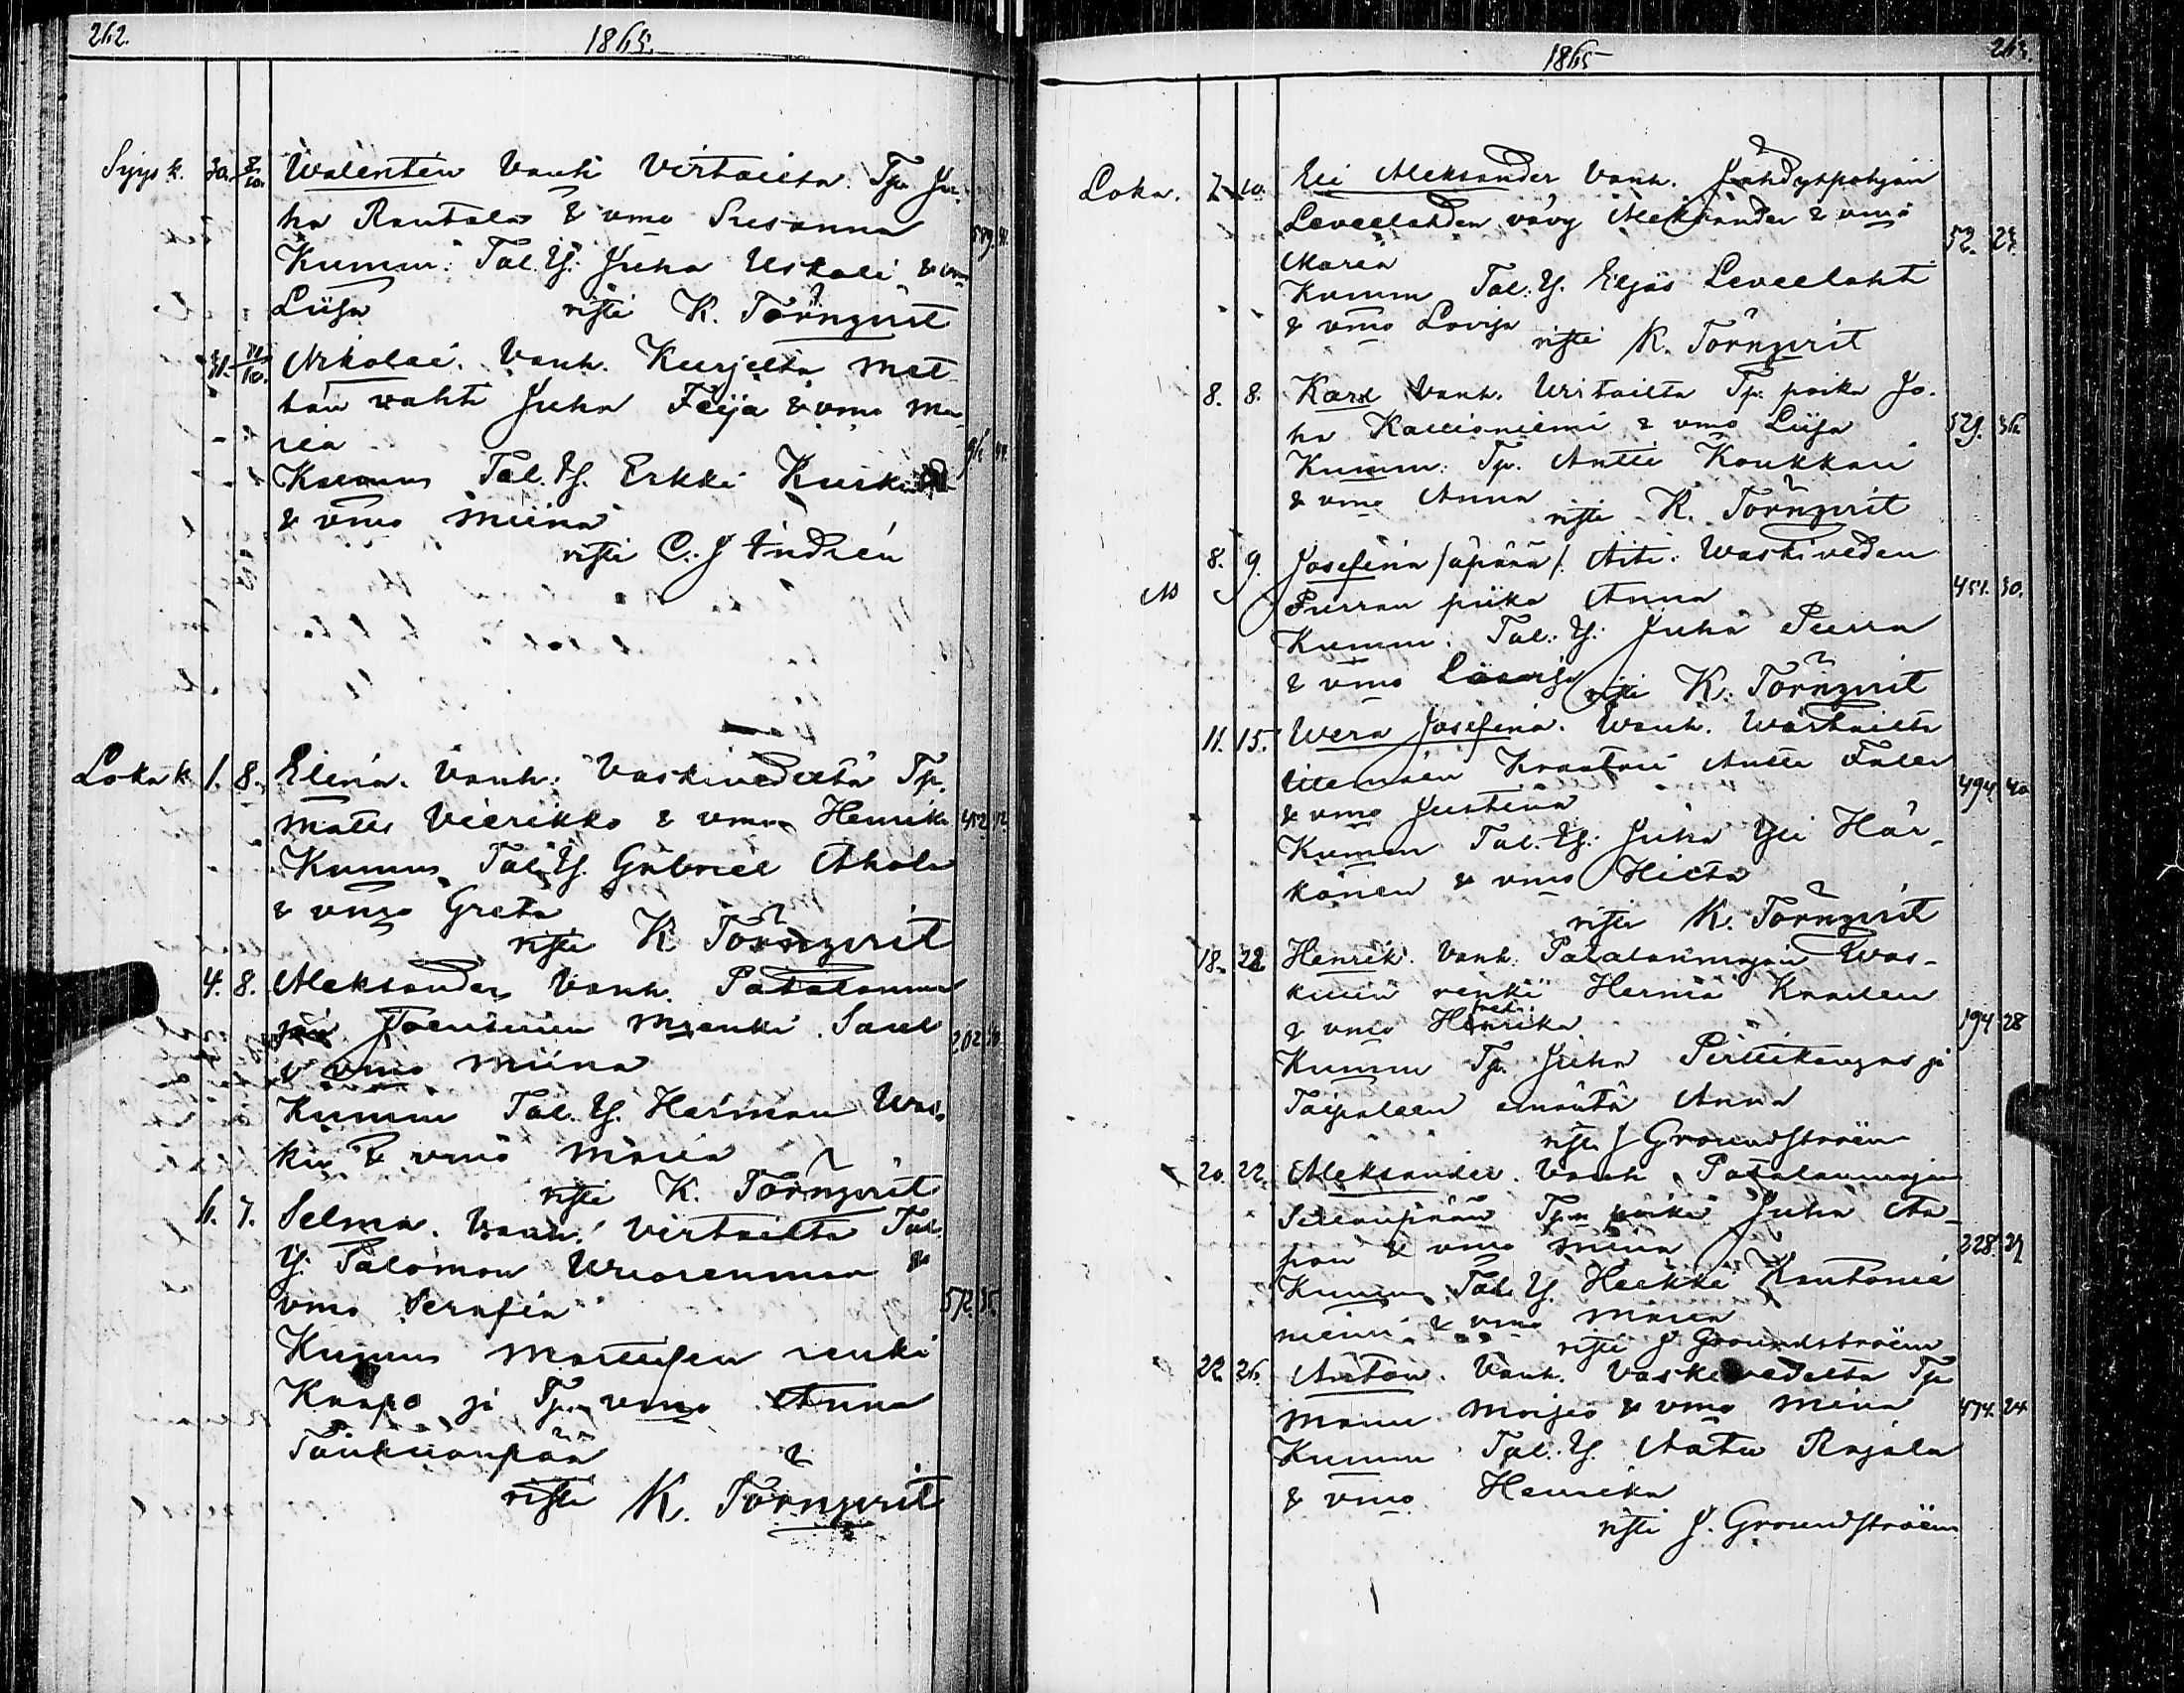 262.
1865.
Syys k. 30. 8/10. Walentin Vanh Virtailta. Tp. Ju-
ha Rautala & vmo Susanna
Kumm: Tal. Y. Juha Uskali & vmo
Liisa risti K. Törnqvist
Nikolai. Vanh. Kurjelta Met-
tän wahti Juha Feija & vmo Ma-
ria
Kumm Tal. Y. Erkki
& vmo Miina
risti C. J Andrén
Loka k. 1. 8. Elina. Vanh: Vaskivedeltä Tp.
Matts Vierikko & vmo Henrika 452
Kumm Tal. Y. Gabriel Ahola
& vmo Greta
risti K Törnqvist
4. 8. Aleksander Vanh. Patalanma
jän renki 202
& vmo Miina
Kumm Tal. Y. Herman Was-
kiv & vmo Maria
risti K. Törnqvist
6. 7. Selma. Vanh. Virtailta Tal.
Y. Salomon Wuorenmaa &
vmo Serafia 572
Kumm Martisen renki
Kaapo ja Tp. vmo Anna
risti K. Törnqvist
1865
263.
Loka. 7. 10. Eli Aleksander Vanh. Jähdyspohjan
Leveelahden vävy Aleksander & vmo 52.
Maria
Kumm Tal. Y. Eljas Leveelahti
& vmo Lovisa risti K. Törnqvist
8. 8. Karl Vanh. Virtailta Tp. poika Jo-
ha Kallioniemi & vmo Liisa 529. 36.
Kumm: Tp. Antti Koukkari
& vmo Anna risti K. Törnqvist
8. 9. Josefina /äpärä/. Äiti: Waskiveden
Purran piika Anna 451. 30.
Kumm. Tal. Y. Juha Purra
& vmo risti K. Törnqvist
11. 15. Wera Josefina. Vanh. Wirtailta
Kraatari Antti Falen 494. 40
& vmo Justina
Kumm Tal. Y. Juha Yli Här-
könen & vmo Hieta
risti K. Törnqvist
18. 22 Henrik. Vanh. Patalanmajan Was-
kiwin renki Hermä Kraslen
& vmo Henrika 194 28
Kumm Tp. Juha Pirttikangas ja
Taipaleen emäntä Anna
risti J Groundström
20. 22. Aleksander. Vanh Patalanmajan
Sillanpään Tp.n poika Juha Aa-
pon & vmo Miina 228. 29
Kumm Tal. Y. Heikki Kautonie
miemi & vmo Maria
risti J Groundström
22 26. Anton. Vanh. Vaskivedelta Tp
Manu Moijes & vmo Miina 474. 24
Kumm Tal. Y. Aatu Rajala
& vmo Henrika
risti J. Groundström